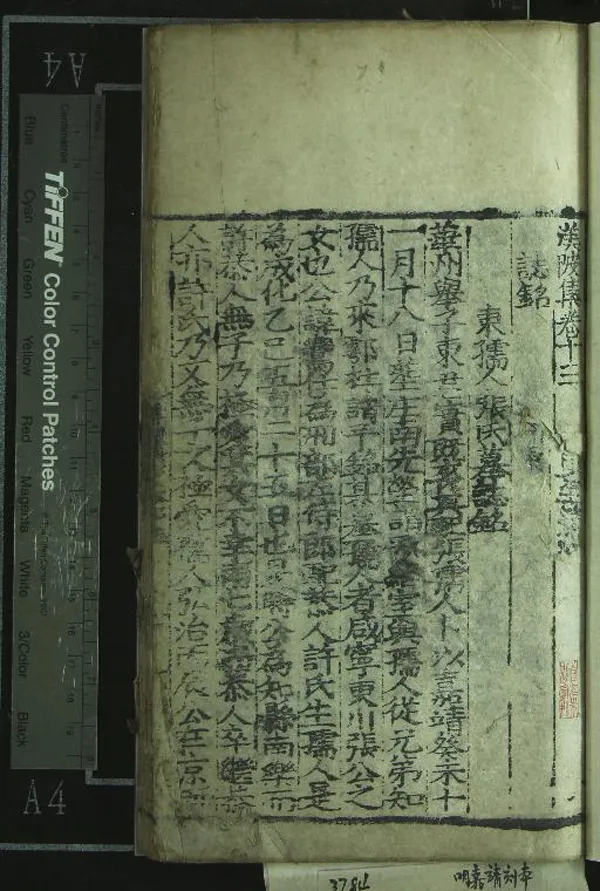 渼陂集卷十三
誌銘
東孺人張氏墓誌銘
華州舉子東 實既喪其配張孺人卜以嘉靖癸未十
一月十八日塟庄南先塋 與孺人從兄弟知
孺人乃來鄠杜請予銘其墓孺人者咸寧東川張公之
女也公諱 仕為刑部左侍郎配恭人許氏生孺人是
為成化乙巳五月二十五日也是時公為知縣南樂而
許恭人無子乃極愛其女不幸 恭人卒繼恭
人亦許氏乃又無子又極愛孺人弘治丙辰公在京
A4
TIFFEN Color Control Patches
Centimetres
Blue
Cyan
Green
Yellow
Red
Magenta
White
3/Color
Black
A4
3784
明嘉靖刻本